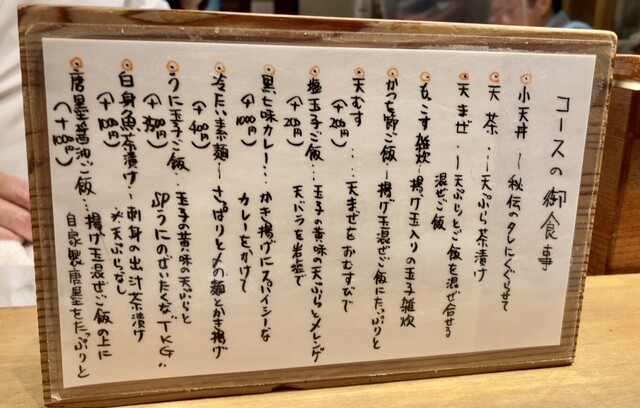 コースの御食事
小天丼 〜秘伝のタレにくぐらせて
天茶 〜天ぷら茶漬け
天まぜ 〜天ぷらとご飯を混ぜ合せる
混ぜご飯
もこす雑炊〜揚げ玉入りの玉子雑炊
かつぶ節ご飯〜揚げ玉混ぜご飯にたっぷりと
天むす …天まぜをおむすびで
(+200円)
塩玉子ご飯…玉子の黄味の天ぷらとメレンゲ
(+200円) 天バラを岩塩で
黒七味カレー…かき揚げにスパイシーな
(+1000円) カレーをかけて
冷たい素麺〜さっぱりと〆の麺とかき揚げ
(+400円)
うに玉子ご飯…玉子の黄味の天ぷらと
SPうにのぜいたくな"TKG"
白身魚茶漬け〜刺身の出汁茶漬け
(+100円) ※天ぷらなし
唐墨醤油ご飯…揚げ玉混ぜご飯の上に
(+1000円) 自家製唐墨をたっぷりと